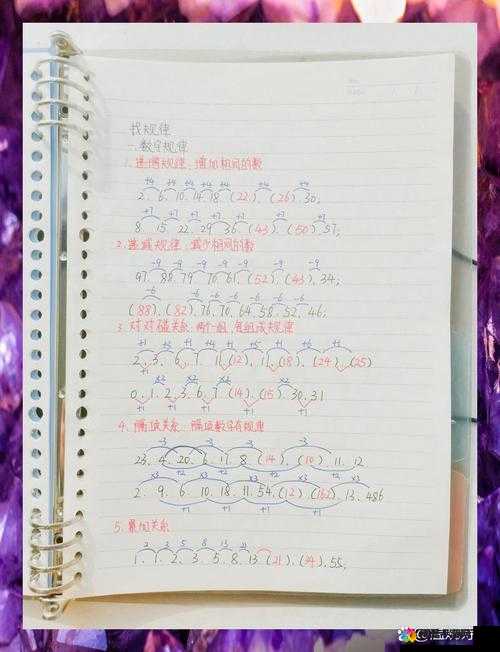 找规律
一.数字规律
1.递增规律:增加相同的数
+4 +4 +4 +4 +4 +4
2.6.10.14.18.(22).(26).30;
+7 +7 +7 +7 +7 +7 +7
8.15.22.29.36.(43).(50).57;
2.递减规律:减少相同的数
-9 -9 -9 -9 -9 -9 -9
97.88.79.70.61.(52).(43).34;
-6 -6 -6 -6 -6 -6
(88).(82).76.70.64.58.52.46;
3.对对碰关系:两个一组,每组成规律
0.1.2.3.6.7.(14).(15).30.31
+1 +1 +1 +1
4.隔项关系:隔项数字有规律
-3 -3 -3
+2 +2
×3 ×3 ×3 ×3
2.9.6.10.18.11.54.(12).(162).13.486
+1 +1
5.累加关系
2 3 5 8 13 21
1.1.2.3.5.8.13.(21).(34).55;